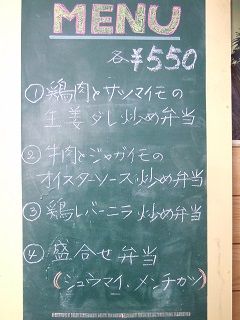 MENU
各¥550
①鶏肉とサツマイモの
生姜ダレ炒め弁当
②牛肉とジャガイモの
オイスターソース炒め弁当
③鶏レバーニラ炒め弁当
④盛合せ弁当
(シュウマイ、メンチカツ)